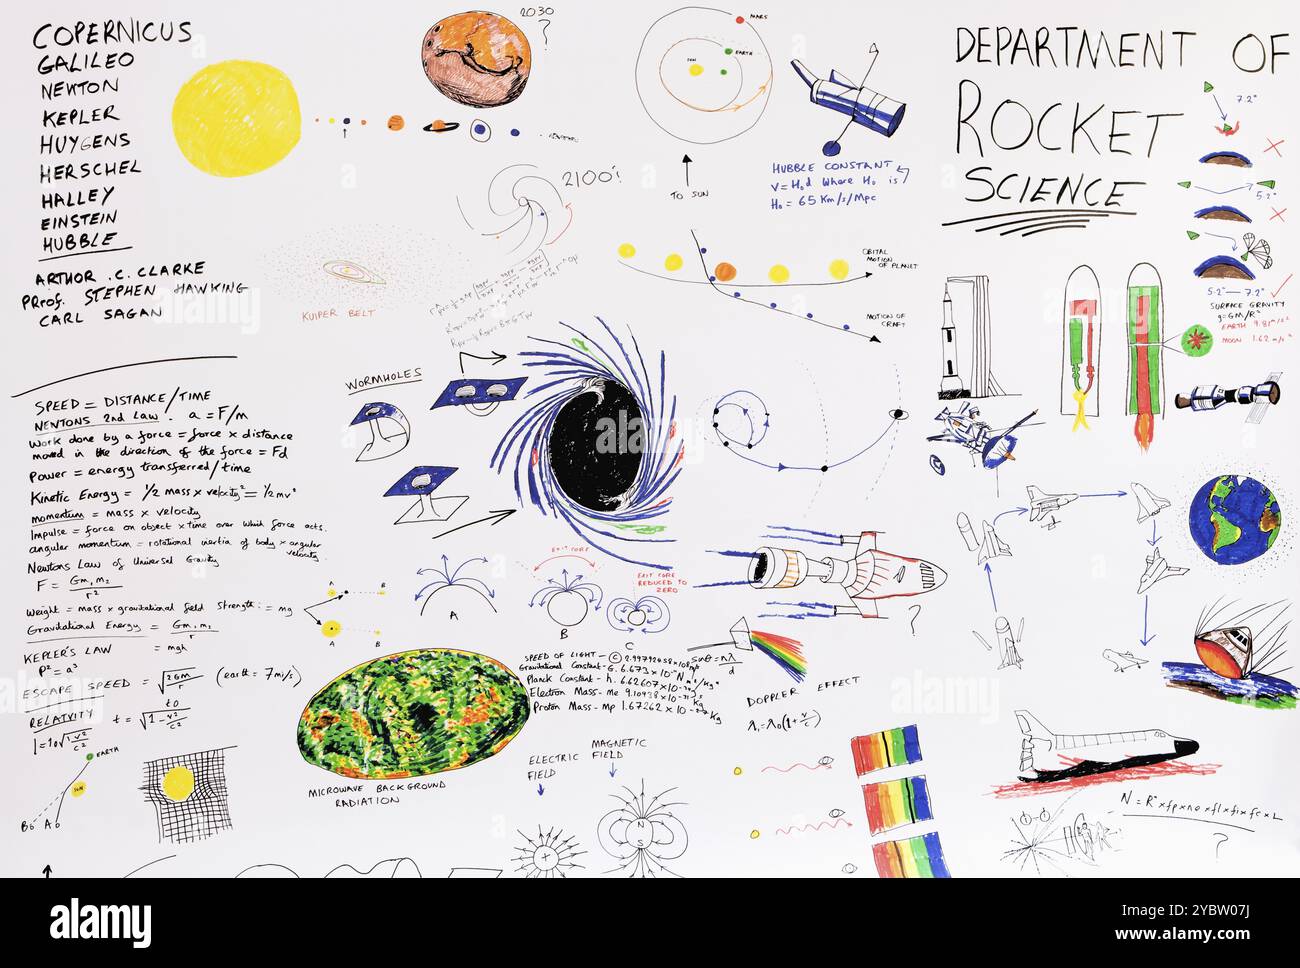 COPERNICUS
GALILEO
NEWTON
KEPLER
HUYGENS
HERSCHEL
HALLEY
EINSTEIN
HUBBLE
ARTHOR .C. CLARKE
PRof. STEPHEN HAWKING
CARL SAGAN
2030
?
MARS
EARTH
SUN
TO SUN
HUBBLE CONSTANT
V = H₀d Where H₀ is
H₀ = 65 Km/s/Mpc
DEPARTMENT OF
ROCKET
SCIENCE
7.2°
5.2°
5.2° — 7.2°
SURFACE GRAVITY
g=GM/R²
EARTH 9.81m/s²
MOON 1.62 m/s²
2100?
KUIPER BELT
OBITAL
MOTION
OF PLANET
MOTION OF
CRAFT
WORMHOLES
SPEED = DISTANCE/TIME
NEWTONS 2nd LAW . a = F/m
Work done by a force = force x distance
moved in the direction of the force = Fd
Power = energy transferred/time
Kinetic Energy = 1/2 mass x velocity² = 1/2mv²
momentum = mass x velocity
Impulse = force on object x time over which force acts.
angular momentum = rotational inertia of body x angular
velocity
Newtons Law of Universal Gravity
F = Gm₁m₂
r²
Weight = mass x gravitational field strength: = mg
Gravitational Energy = Gm₁m₂
r
= mgh
KEPLER'S LAW
P² = a³
ESCAPE SPEED = √2GM
r
(earth = 7mi/s)
RELATVITY
t = t0
√1-v²
c²
l=l0√1-v²
c²
EARTH
SUN
B₀ A₀
A B
A B
A
EXIT CORE
B
EXIT CORE
REDUCED TO
ZERO
C
?
SPEED OF LIGHT - (C) 2.99792458 x 10⁸ m/s
Gravitational Constant - G. 6.673 x 10
Planck Constant - h. 6.62607 x 10
Electron Mass - me 9.10938 x 10
Proton Mass - Mp 1.67262 x 10 -27 Kg
sinθ = nλ
d
DOPPLER EFFECT
λ₁ = λ₀(1+v/c)
MICROWAVE BACKGROUND
RADIATION
ELECTRIC
FIELD
MAGNETIC
FIELD
N
S
+
N = R* x fp x ne x fl x fi x fc x L
?
alamy
Image ID: 2YBW07J
www.alamy.com